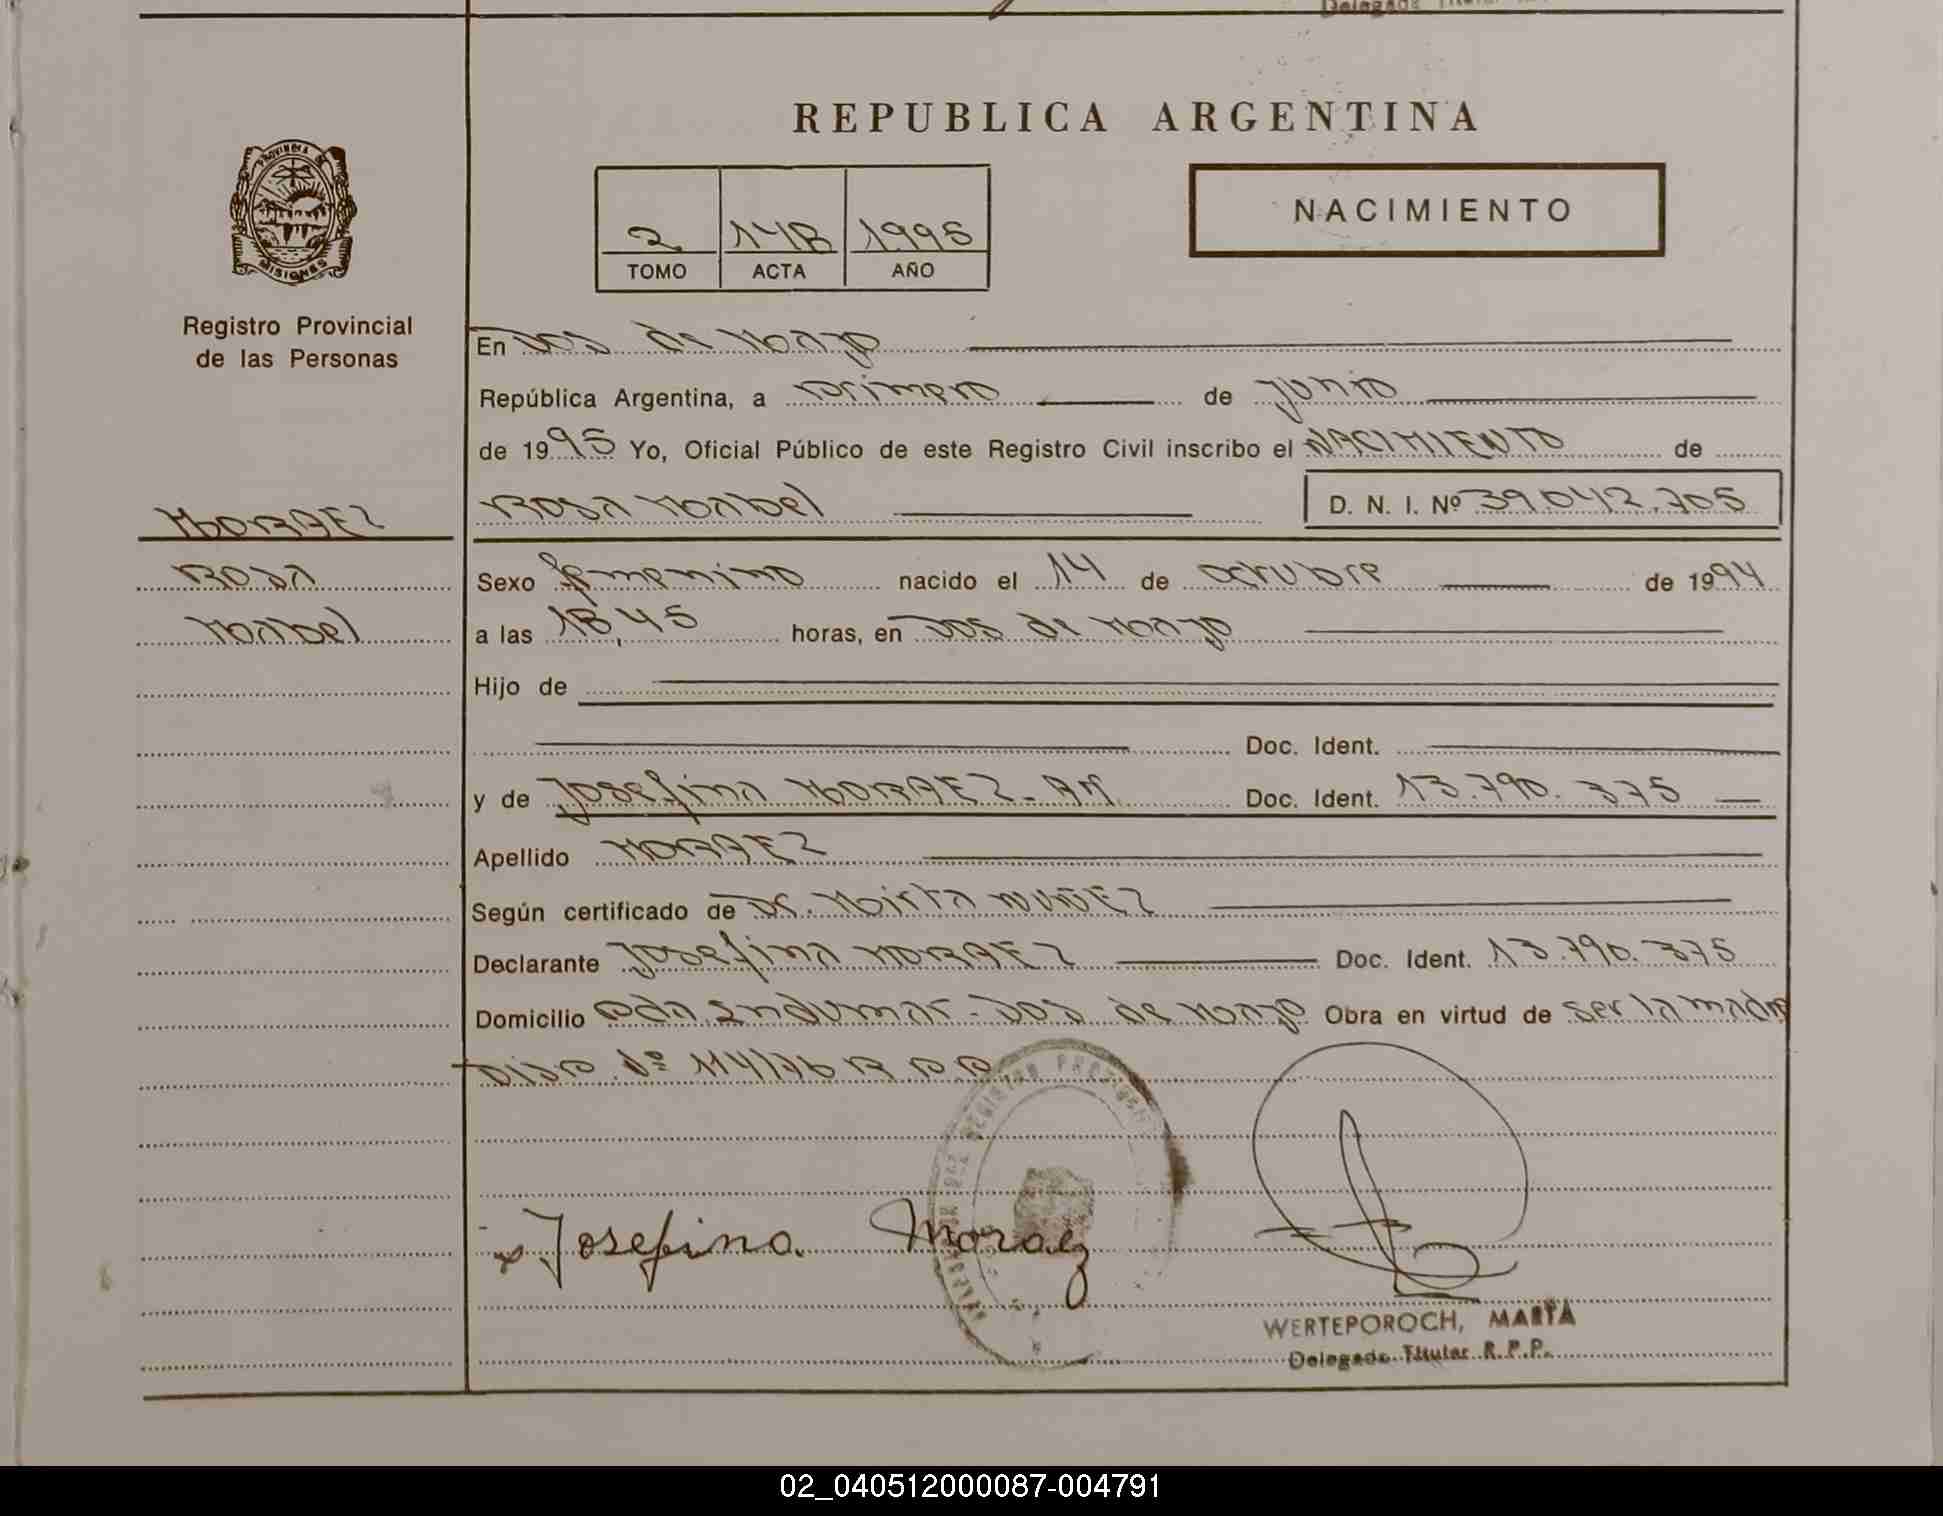 Delegado Titular
REPUBLICA ARGENTINA
PROVINCIA DE
MISIONES
2 148 1995
TOMO ACTA AÑO
NACIMIENTO
Registro Provincial
de las Personas
En Dos de Mayo
República Argentina, a primero de junio
de 1995 Yo, Oficial Público de este Registro Civil inscribo el NACIMIENTO de
MORAEZ
Rosa Mabel D. N. I. Nº 39.042.705
Rosa
Mabel
Sexo femenino nacido el 14 de octubre de 1994
a las 18,45 horas, en Dos de Mayo
Hijo de
Doc. Ident.
y de Josefina MORAEZ. AM. Doc. Ident. 13.790.375
Apellido MORAEZ
Según certificado de Dr. Mirta NUÑEZ
Declarante Josefina MORAEZ Doc. Ident. 13.790.375
Domicilio Dos de Mayo Obra en virtud de ser la madre
Disp. Nº 114/76 R.P.P.
REGISTRO
Josefina Moraez
WERTEPOROCH, MARTA
Delegado Titular R.P.P.
02_040512000087-004791